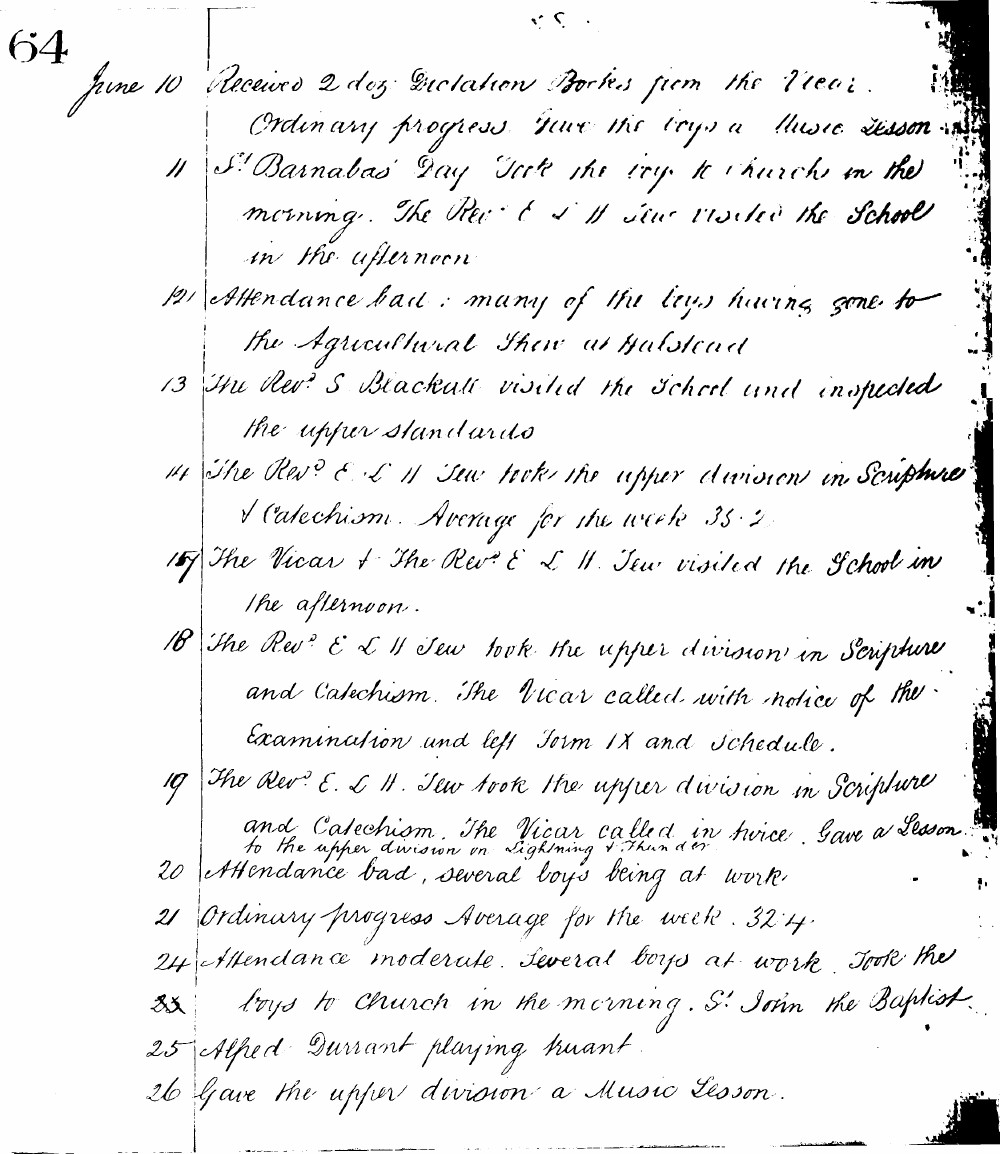 64
June 10 Received 2 doz Dictation Books from the Vicar.
Ordinary progress. Gave the boys a Music Lesson
11 St Barnabas' Day Took the boys to church in the
morning. The Revd E L H Tew visited the School
in the afternoon
12 Attendance bad : many of the boys having gone to
the Agricultural Show at Halstead
13 The Revd S Blackall visited the School and inspected
the upper standards
14 The Revd E. L H Tew took the upper division in Scripture
& Catechism. Average for the week 35.2
17 The Vicar & The Revd E L H. Tew visited the School in
the afternoon.
18 The Revd E L H Tew took the upper division in Scripture
and Catechism. The Vicar called with notice of the
Examination and left Form IX and Schedule.
19 The Revd E. L H. Tew took the upper division in Scripture
and Catechism. The Vicar called in twice. Gave a Lesson
to the upper division on Lightning & Thunder
20 Attendance bad, several boys being at work
21 Ordinary progress Average for the week. 32.4.
24 Attendance moderate. Several boys at work. Took the
boys to church in the morning. St John the Baptist.
25 Alfred Durrant playing truant
26 Gave the upper division a Music Lesson.